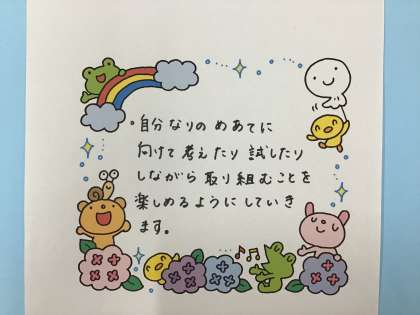 ・自分なりのめあてに
向けて考えたり試したり
しながら取り組むことを
楽しめるようにしていき
ます。